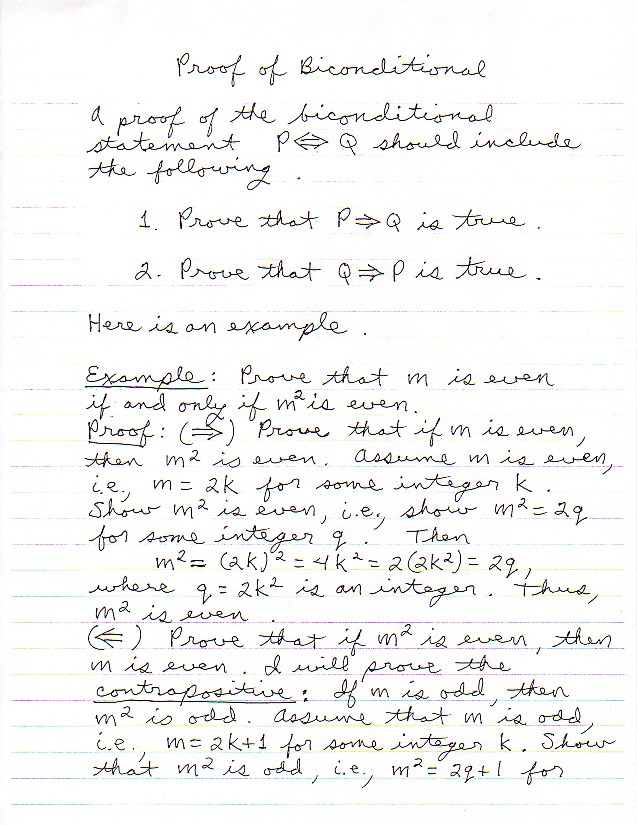 Proof of Biconditional
A proof of the biconditional
statement P⇔Q should include
the following.
1. Prove that P⇒Q is true.
2. Prove that Q⇒P is true.
Here is an example.
Example: Prove that m is even
if and only if m² is even.
Proof: (⇒) Prove that if m is even,
then m² is even. Assume m is even,
i.e., m = 2k for some integer k.
Show m² is even, i.e., show m² = 2q
for some integer q. Then
m² = (2k)² = 4k² = 2(2k²) = 2q,
where q = 2k² is an integer. Thus,
m² is even.
(⇐) Prove that if m² is even, then
m is even. I will prove the
contrapositive: If m is odd, then
m² is odd. Assume that m is odd,
i.e., m = 2k+1 for some integer k. Show
that m² is odd, i.e., m² = 2q+1 for